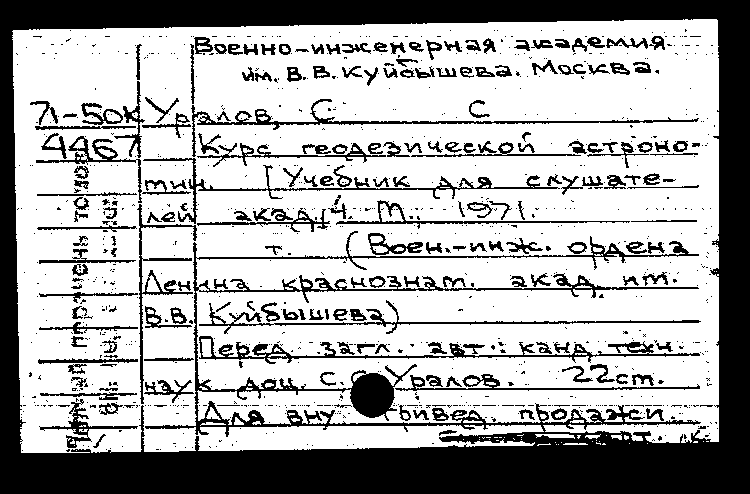 Военно-инженерная академия
им. В.В. Куйбышева. Москва.
71-50к Уралов, С С
4467 Курс геодезической астроно-
мии. [Учебник для слушате-
лей акад.] Ч. М., 1971.
т. (Воен.-инж. ордена
Ленина краснознам. акад. им.
В.В. Куйбышева)
Перед загл. авт.: канд. техн.
наук доц. С.С. Уралов. 22 см.
Для вну. продажи.
перечень томов